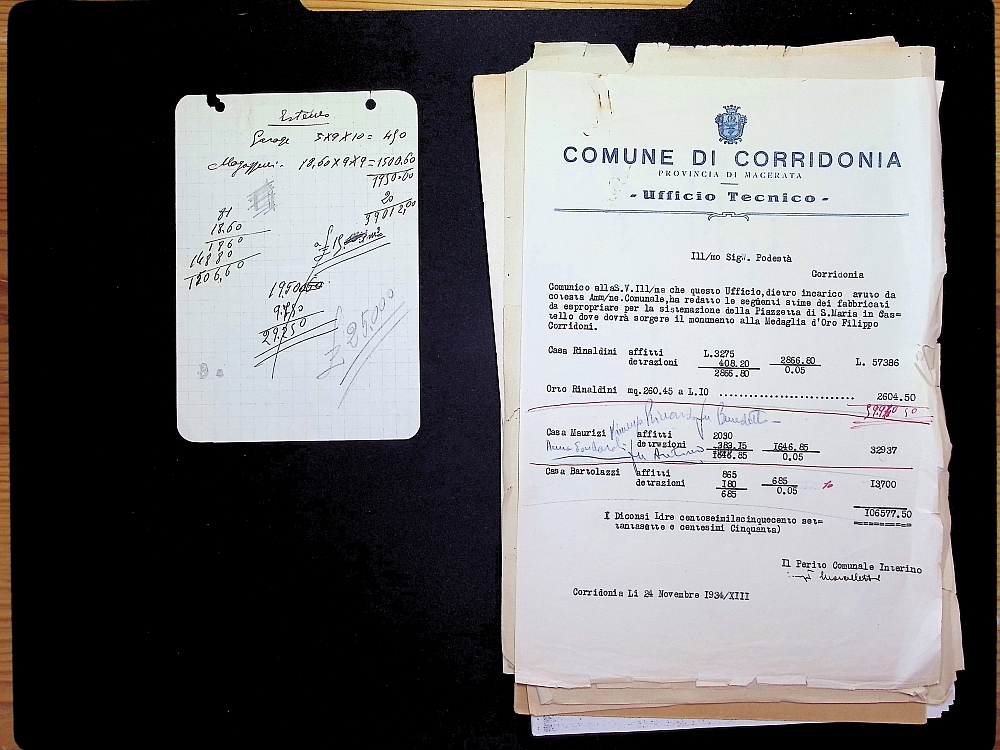 Esterno
Garage 5X9X10= 450
Magazzeni. 18,60X9X9=1500.60
1950.60
20
39012,00
81
18.60
1860
14880
1206,60
19.50
9.750
29.250
£ 25.000
COMUNE DI CORRIDONIA
PROVINCIA DI MACERATA
- Ufficio Tecnico -
Ill/mo Sig. Podestà
Corridonia
Comunico allaS.V.Ill/ma che questo Ufficio,dietro incarico avuto da
cotesta Amm/ne.Comunale,ha redatto le seguenti stime dei fabbricati
da espropriare per la sistemazione della Piazzetta di S.Maria in Cas=
tello dove dovrà sorgere il monumento alla Medaglia d'Oro Filippo
Corridoni.
Casa Rinaldini affitti L.3275
detrazioni 408.20 2866.80 L. 57386
2866.80 0.05
Orto Rinaldini mq.260.45 a L.I0 ........................... 2604.50
Casa Maurizi affitti 2030
detrazioni 383.15 1646.85 32937
1646.85 0.05
Casa Bartolazzi affitti 865
detrazioni 180 685 I3700
685 0.05
I06577.50
( Diconsi Lire centoseimilacinquecento set=
tantasette e centesimi Cinquanta)
Il Perito Comunale Interino
Corridonia Li 24 Novembre I934/XIII